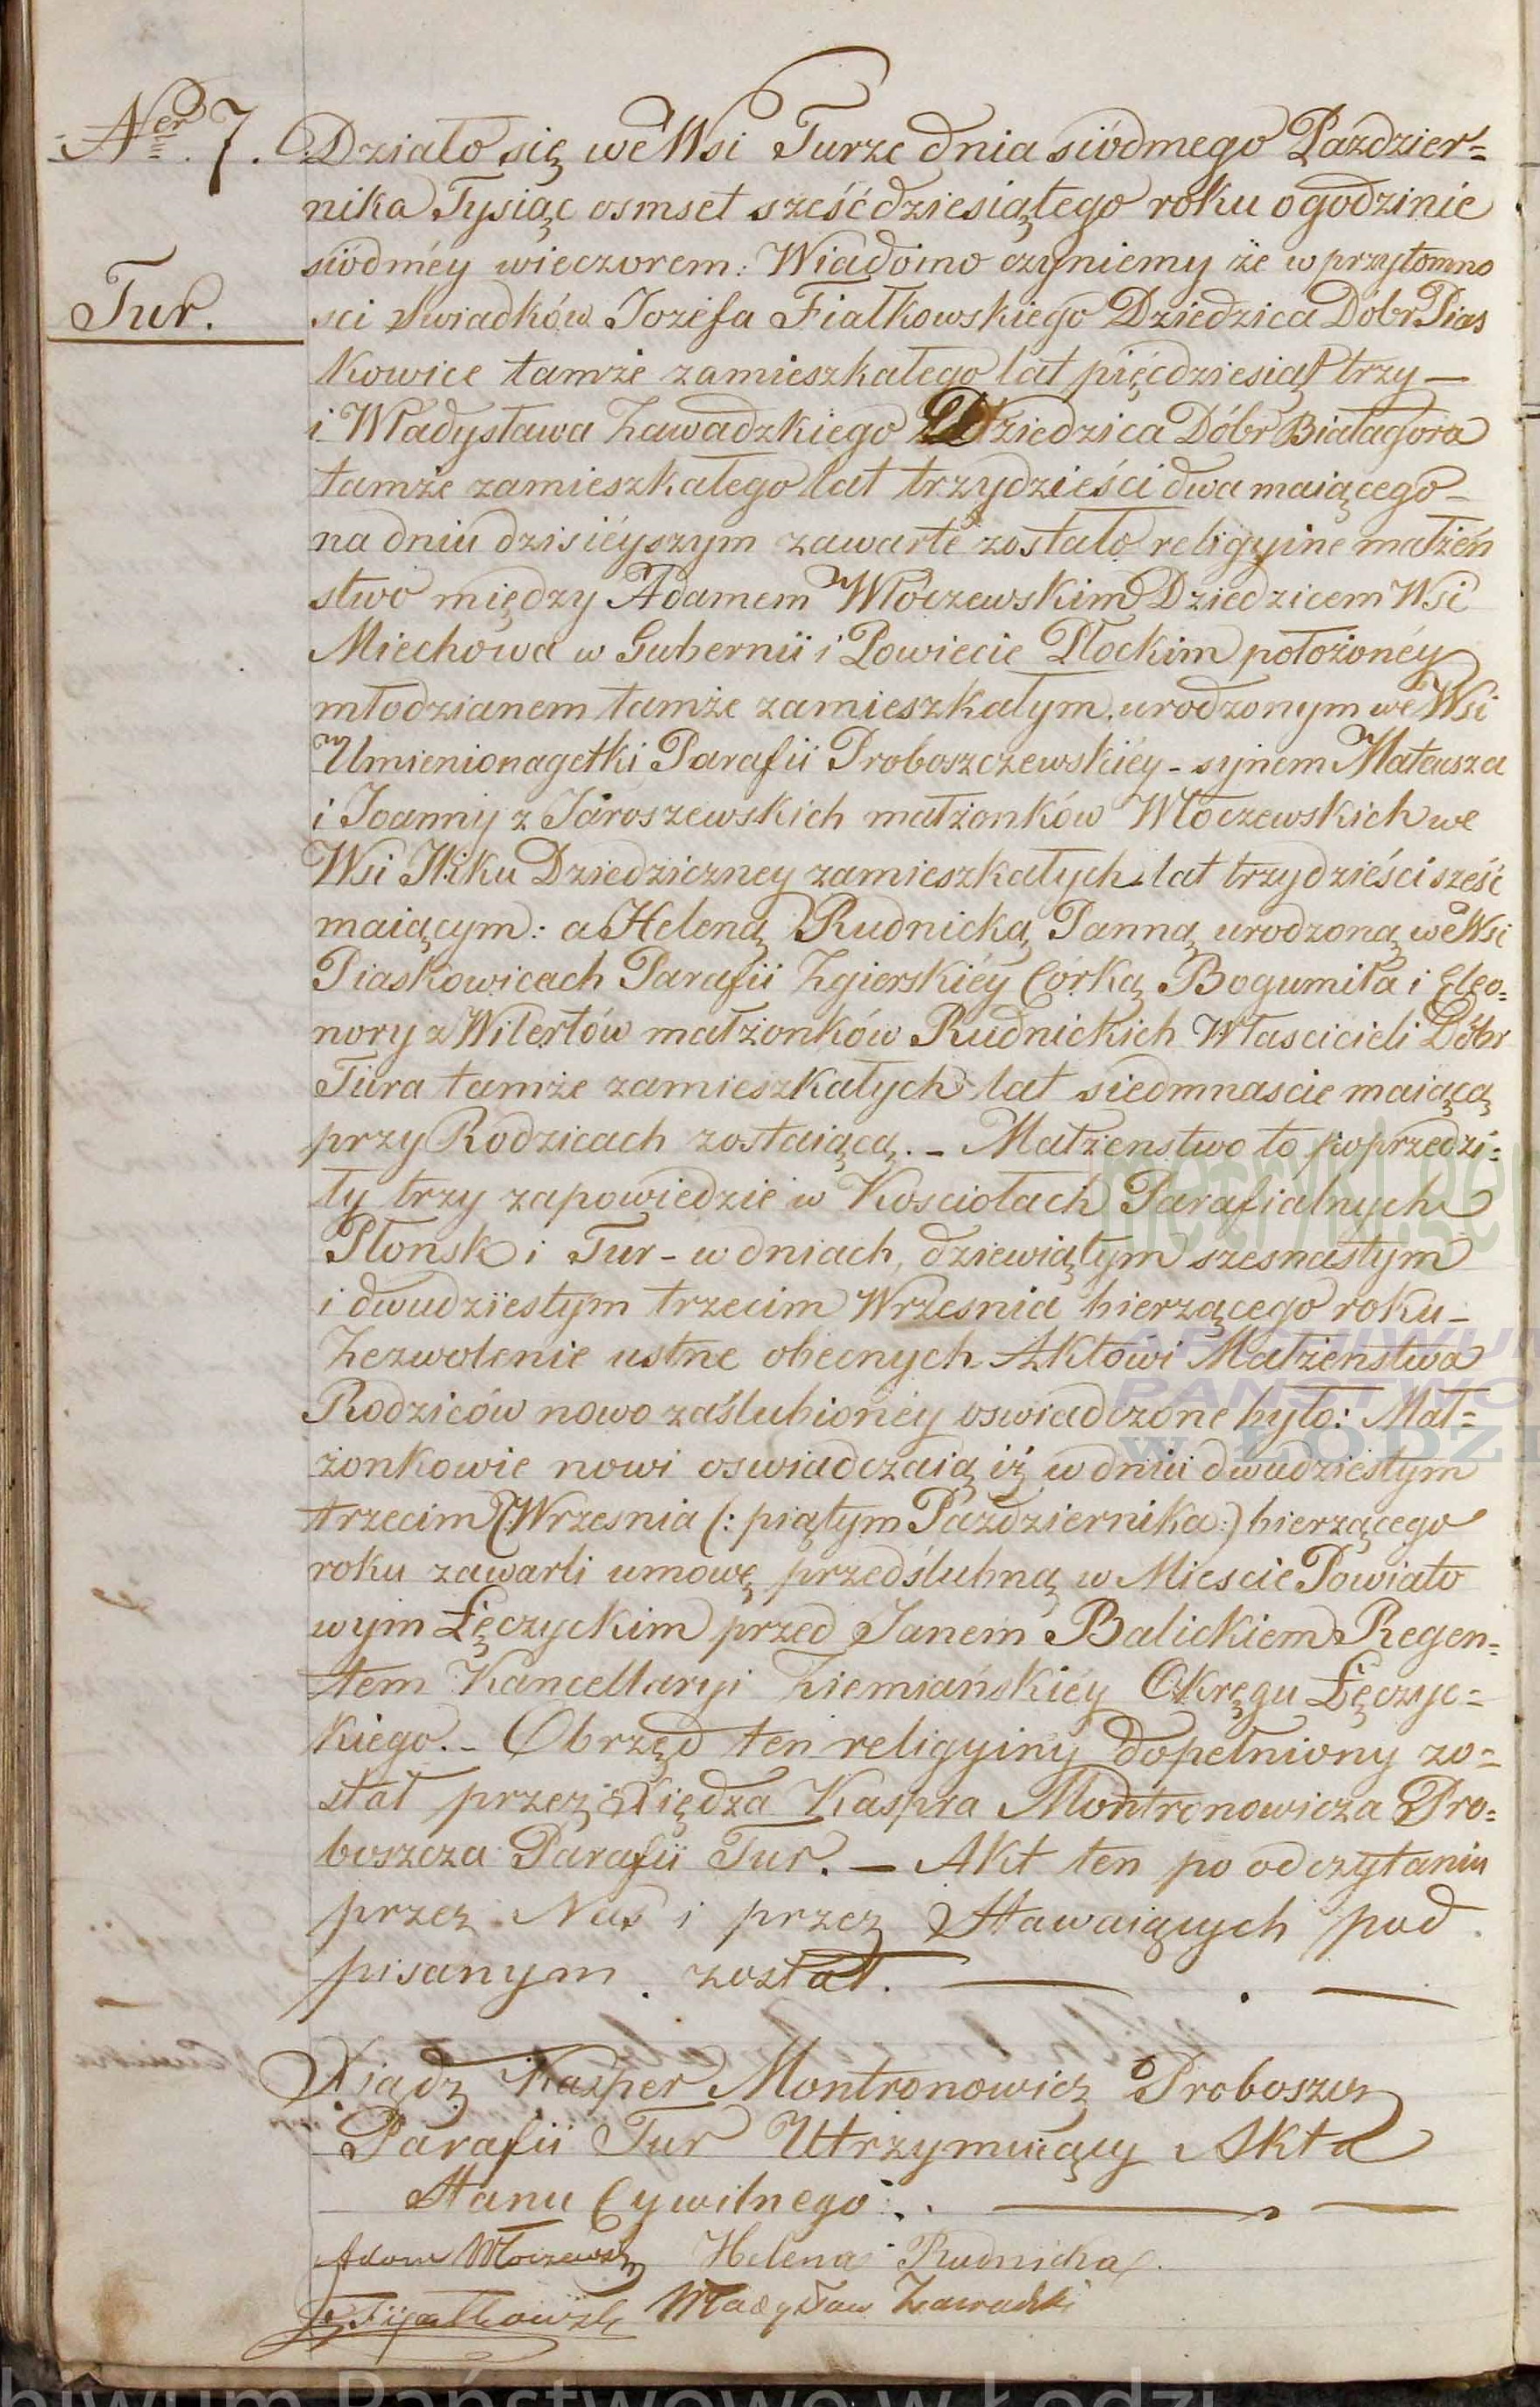 Ner 7.
Tur.
Działo się we Wsi Turze dnia siódmego Pazdzier=
nika Tysiąc osmset sześćdziesiątego roku o godzinie
siódméy wieczorem: Wiadomo czyniemy że w przytomno
sci Swiadków Jozefa Fiałkowskiego Dziedzica Dóbr Pias
kowice tamże zamieszkałego lat pięćdziesiąt trzy —
i Władysława Zawadzkiego Dziedzica Dóbr Białagóra
tamże zamieszkałego lat trzydzieści dwa maiącego –
na dniu dzisiéyszym zawarte zostało religyine małżeń
stwo między Adamem Włoczewskim Dziedzicem Wsi
Miechowa w Gubernii i Powiecie Płockim położonéy
młodzianem tamże zamieszkałym, urodzonym we Wsi
Umienionagetki Parafii Proboszczewskiéy – synem Mateusza
i Joanny z Jaroszewskich małżonków Włoczewskich we
Wsi Dziedziczney zamieszkałych lat trzydzieści sześć
maiącym: a Heleną Rudnicką Panną urodzoną we Wsi
Piaskowicach Parafii Zgierskiéy Córką Bogumiła i Eleo=
nory z Wilertów małżonków Rudnickich Włascicieli Dóbr
Tura tamże zamieszkałych lat siedmnascie maiącą
przy Rodzicach zostaiącą. – Małżenstwo to poprzedzi=
ły trzy zapowiedzie w Kosciołach Parafialnych
Płonsk i Tur – w dniach, dziewiątym szesnastym
i dwudziestym trzecim Wrzesnia bierzącego roku –
Zezwolenie ustne obecnych Aktowi Małżenstwa
Rodziców nowo zaślubionéy oswiadczone było: Mał=
żonkowie nowi oswiadczaią iż w dniu dwudziestym
trzecim Wrzesnia (: piątym Pazdziernika :) bierzącego
roku zawarli umowę przedślubną w Miescie Powiato
wym Łęczyckim przed Janem Balickiem Regen=
tem Kancellaryi Ziemiańskiéy Okręgu Łęczyc=
kiego. – Obrzęd ten religyiny dopełniony zo=
stał przez Xiędza Kaspra Montronowicza Pro=
boszcza Parafii Tur. — Akt ten po odczytaniu
przez Nas i przez Stawaiących pod
pisanym został.
Xiądz Kasper Montronowicz Proboszcz
Parafii Tur Utrzymuiący Akta
Stanu Cywilnego.
Adam Włoczewski Helena Rudnicka
J. Fijałkowski Władysław Zawadzki
metryki.gen
ARCHIWUM
PAŃSTWO
W ŁODZI
hiwum Państwowe w Łodzi